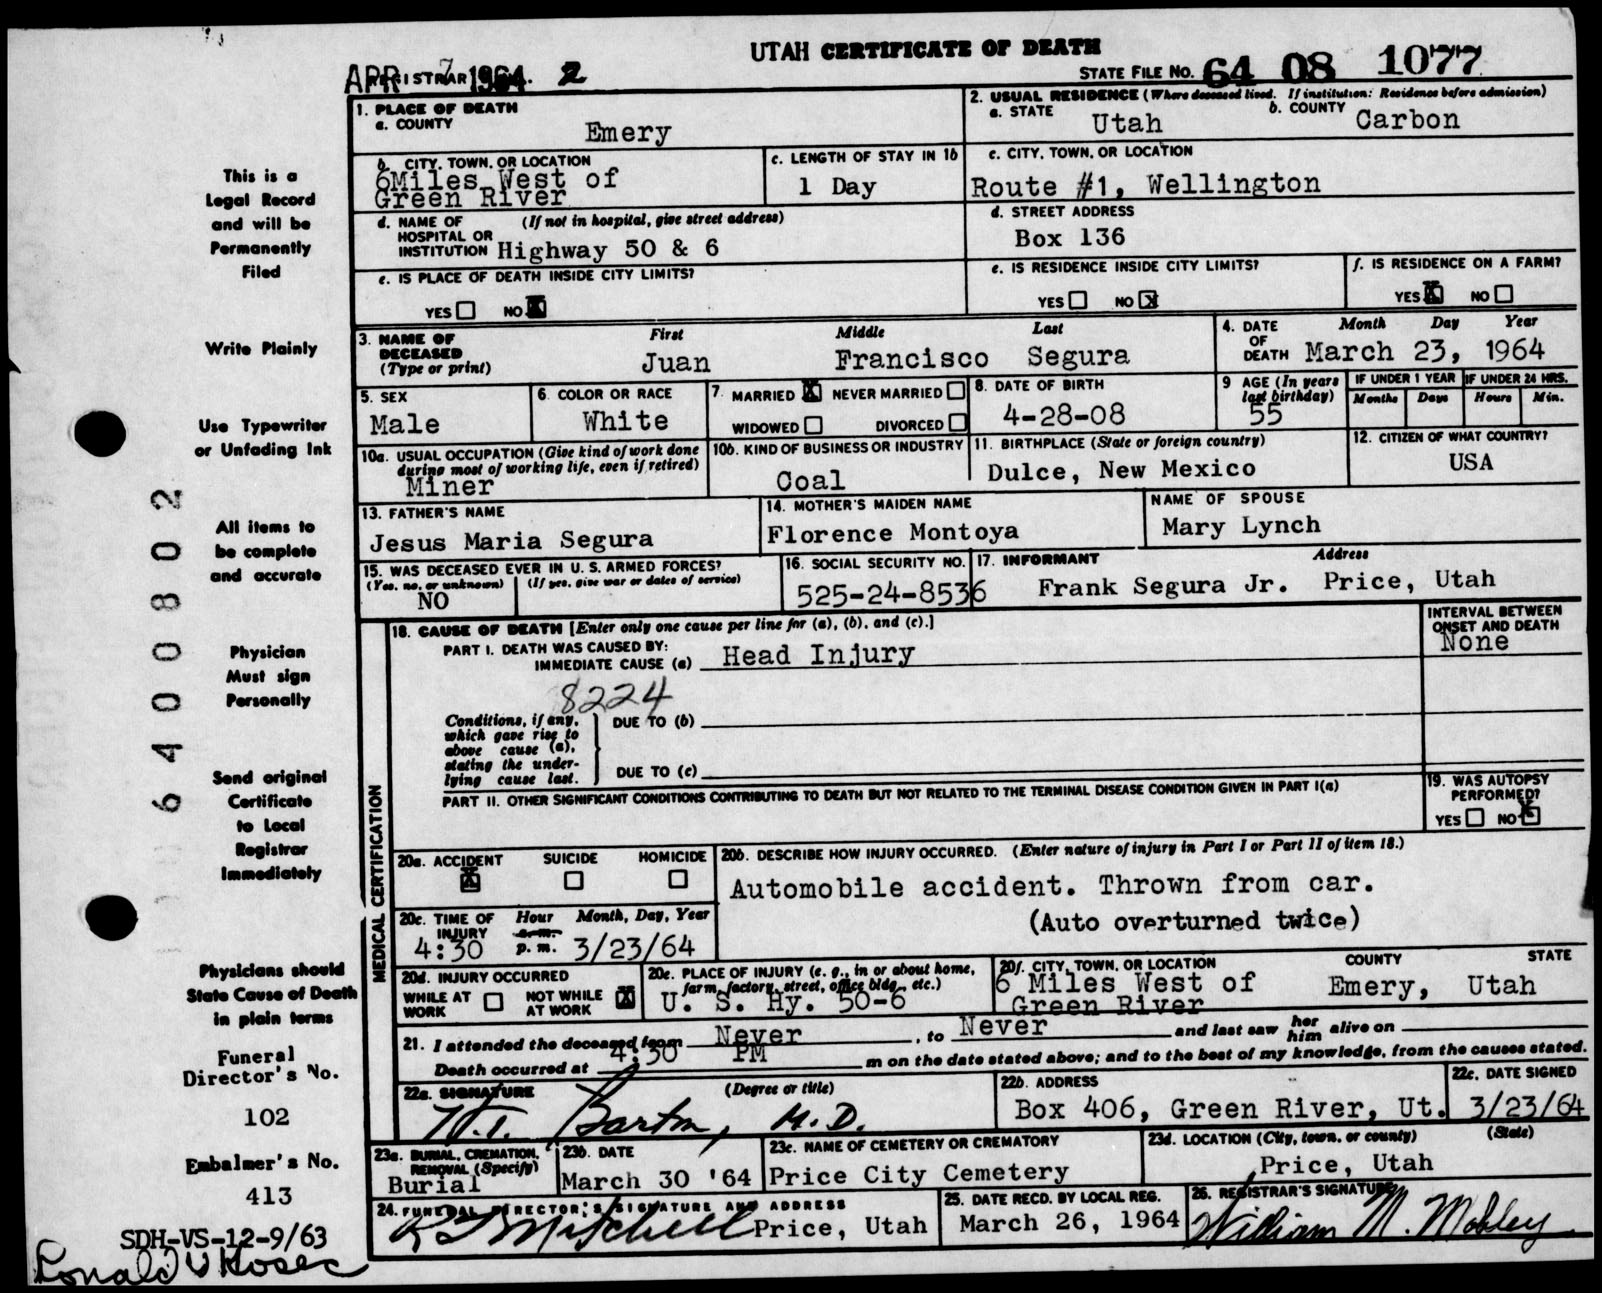 UTAH CERTIFICATE OF DEATH
APR 7 1964 2
STATE FILE NO. 64 08 1077
1. PLACE OF DEATH
a. COUNTY
Emery
2. USUAL RESIDENCE (Where deceased lived. If institution: Residence before admission)
a. STATE Utah b. COUNTY Carbon
b. CITY, TOWN, OR LOCATION
6Miles West of
Green River
c. LENGTH OF STAY IN 1b
1 Day
c. CITY, TOWN, OR LOCATION
Route #1, Wellington
d. NAME OF (If not in hospital, give street address)
HOSPITAL OR
INSTITUTION Highway 50 & 6
d. STREET ADDRESS
Box 136
e. IS PLACE OF DEATH INSIDE CITY LIMITS?
YES NO X
e. IS RESIDENCE INSIDE CITY LIMITS?
YES NO X
f. IS RESIDENCE ON A FARM?
YES X NO
3. NAME OF First Middle Last
DECEASED
(Type or print)
Juan Francisco Segura
4. DATE Month Day Year
OF
DEATH March 23, 1964
5. SEX
Male
6. COLOR OR RACE
White
7. MARRIED X NEVER MARRIED
WIDOWED DIVORCED
8. DATE OF BIRTH
4-28-08
9 AGE (In years
last birthday)
55
IF UNDER 1 YEAR IF UNDER 24 HRS.
Months Days Hours Min.
10a. USUAL OCCUPATION (Give kind of work done
during most of working life, even if retired)
Miner
10b. KIND OF BUSINESS OR INDUSTRY
Coal
11. BIRTHPLACE (State or foreign country)
Dulce, New Mexico
12. CITIZEN OF WHAT COUNTRY?
USA
13. FATHER'S NAME
Jesus Maria Segura
14. MOTHER'S MAIDEN NAME
Florence Montoya
NAME OF SPOUSE
Mary Lynch
15. WAS DECEASED EVER IN U. S. ARMED FORCES?
(Yes, no, or unknown) (If yes, give war or dates of service)
NO
16. SOCIAL SECURITY NO.
525-24-8536
17. INFORMANT Address
Frank Segura Jr. Price, Utah
MEDICAL CERTIFICATION
18. CAUSE OF DEATH [Enter only one cause per line for (a), (b), and (c).]
PART I. DEATH WAS CAUSED BY:
IMMEDIATE CAUSE (a) Head Injury
INTERVAL BETWEEN
ONSET AND DEATH
None
8224
Conditions, if any,
which gave rise to
above cause (a),
stating the under-
lying cause last.
DUE TO (b)
DUE TO (c)
PART II. OTHER SIGNIFICANT CONDITIONS CONTRIBUTING TO DEATH BUT NOT RELATED TO THE TERMINAL DISEASE CONDITION GIVEN IN PART I(a)
19. WAS AUTOPSY
PERFORMED?
YES NO X
20a. ACCIDENT SUICIDE HOMICIDE
X
20b. DESCRIBE HOW INJURY OCCURRED. (Enter nature of injury in Part I or Part II of item 18.)
Automobile accident. Thrown from car.
(Auto overturned twice)
20c. TIME OF Hour Month, Day, Year
INJURY a.m.
4:30 p. m. 3/23/64
20d. INJURY OCCURRED
WHILE AT WORK NOT WHILE AT WORK X
20e. PLACE OF INJURY (e. g., in or about home,
farm, factory, street, office bldg., etc.)
U. S. Hy. 50-6
20f. CITY, TOWN, OR LOCATION COUNTY STATE
6 Miles West of Emery, Utah
Green River
21. I attended the deceased from Never, to Never and last saw her him alive on
Death occurred at 4:30 PM m on the date stated above; and to the best of my knowledge, from the causes stated.
22a. SIGNATURE (Degree or title)
W.T. Barton, M.D.
22b. ADDRESS
Box 406, Green River, Ut.
22c. DATE SIGNED
3/23/64
23a. BURIAL, CREMATION,
REMOVAL (Specify)
Burial
23b. DATE
March 30 '64
23c. NAME OF CEMETERY OR CREMATORY
Price City Cemetery
23d. LOCATION (City, town, or county) (State)
Price, Utah
24. FUNERAL DIRECTOR'S SIGNATURE AND ADDRESS
Mitchell Price, Utah
25. DATE RECD. BY LOCAL REG.
March 26, 1964
26. REGISTRAR'S SIGNATURE
William M. Mobley
This is a
Legal Record
and will be
Permanently
Filed
Write Plainly
Use Typewriter
or Unfading Ink
All items to
be complete
and accurate
Physician
Must sign
Personally
Send original
Certificate
to Local
Registrar
Immediately
Physicians should
State Cause of Death
in plain terms
Funeral
Director's No.
102
Embalmer's No.
413
SDH-VS-12-9/63
Ronald V Kosec
64008002